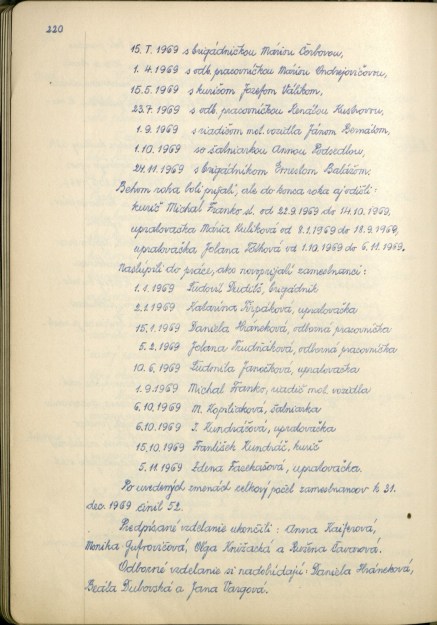 220
15. I. 1969 s brigádničkou Máriou Čorbovou,
1. 4. 1969 s odb. pracovníčkou Máriou Ondrejovičovou,
15.5. 1969 s kuričom Jozefom Válikom,
23.7. 1969 s odb. pracovníčkou Renátou
1.9. 1969 s vodičom mot. vozidla Jánom
1.10. 1969 so šatniarkou Annou Podsedlou,
24.11.1969 s brigádnikom Ernestom Balážom.
Behom roka boli prijatí, ale do konca roka aj odišli:
kurič Michal Franko st. od 22.9.1969 do 14.10.1969,
upratovačka Mária Kulíková od 8.1.1969 do 18.9.1969,
upratovačka Jolana od 1.10.1969 do 6.11.1969.
Nastúpili do práce, ako novoprijatí zamestnanci:
1.1.1969 Ľudovít brigádnik
2.1.1969 Katarína upratovačka
15.1.1969 Daniela Hráneková, odborná pracovníčka
5.2.1969 Jolana odborná pracovníčka
10.6.1969 Ľudmila Janočková, upratovačka
1.9.1969 Michal Franko, vodič mot. vozidla
6.10.1969 M. šatniarka
6.10.1969 Kundráčová, upratovačka
15.10.1969 František Kundráč, kurič
5.11.1969 Zdena Farkašová, upratovačka.
Po uvedených zmenách celkový počet zamestnancov k 31.
dec. 1969 činil 52.
Predpísané vzdelanie ukončili: Anna
Monika Olga a
Odborné vzdelanie si nadobúdajú: Daniela Hráneková,
Beáta Dubovská a Jana Vargová.